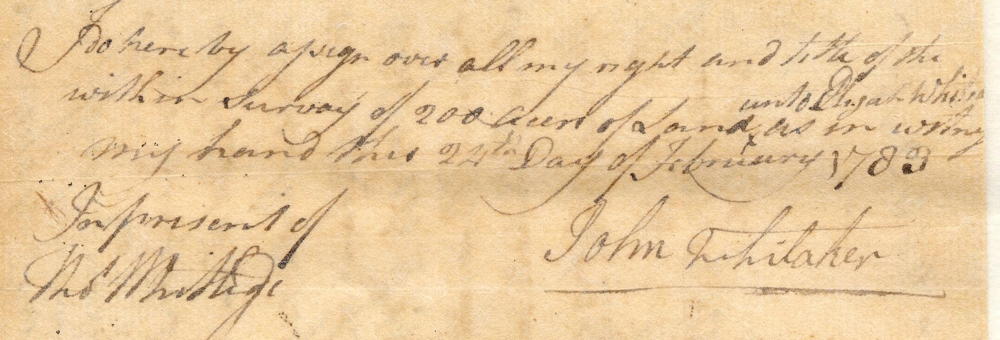 I do hereby asign over all my right and title of the
within Survay of 200 Acers of Land as in witnes
unto Elijah
my hand this 24th Day of February 1783
In present of
John Whitaker
Thos